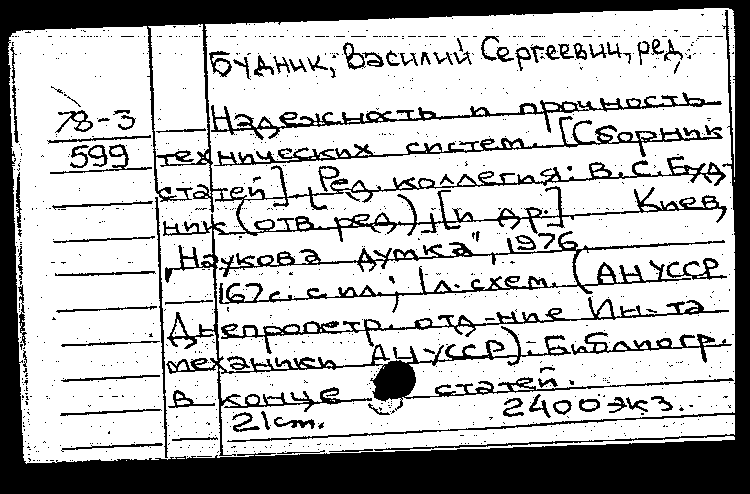 Будник, Василий Сергеевич, ред.
78-3 Надежность и прочность
599 технических систем. [Сборник
статей]. Ред. коллегия: В.С. Буд-
ник (отв. ред.), [и др.]. Киев,
"Наукова думка", 1976.
167 с. с ил.; 1 л. схем. (АН УССР
Днепропетр. отд-ние Ин-та
механики АН УССР). Библиогр.
в конце статей.
21 cm. 2400 экз.